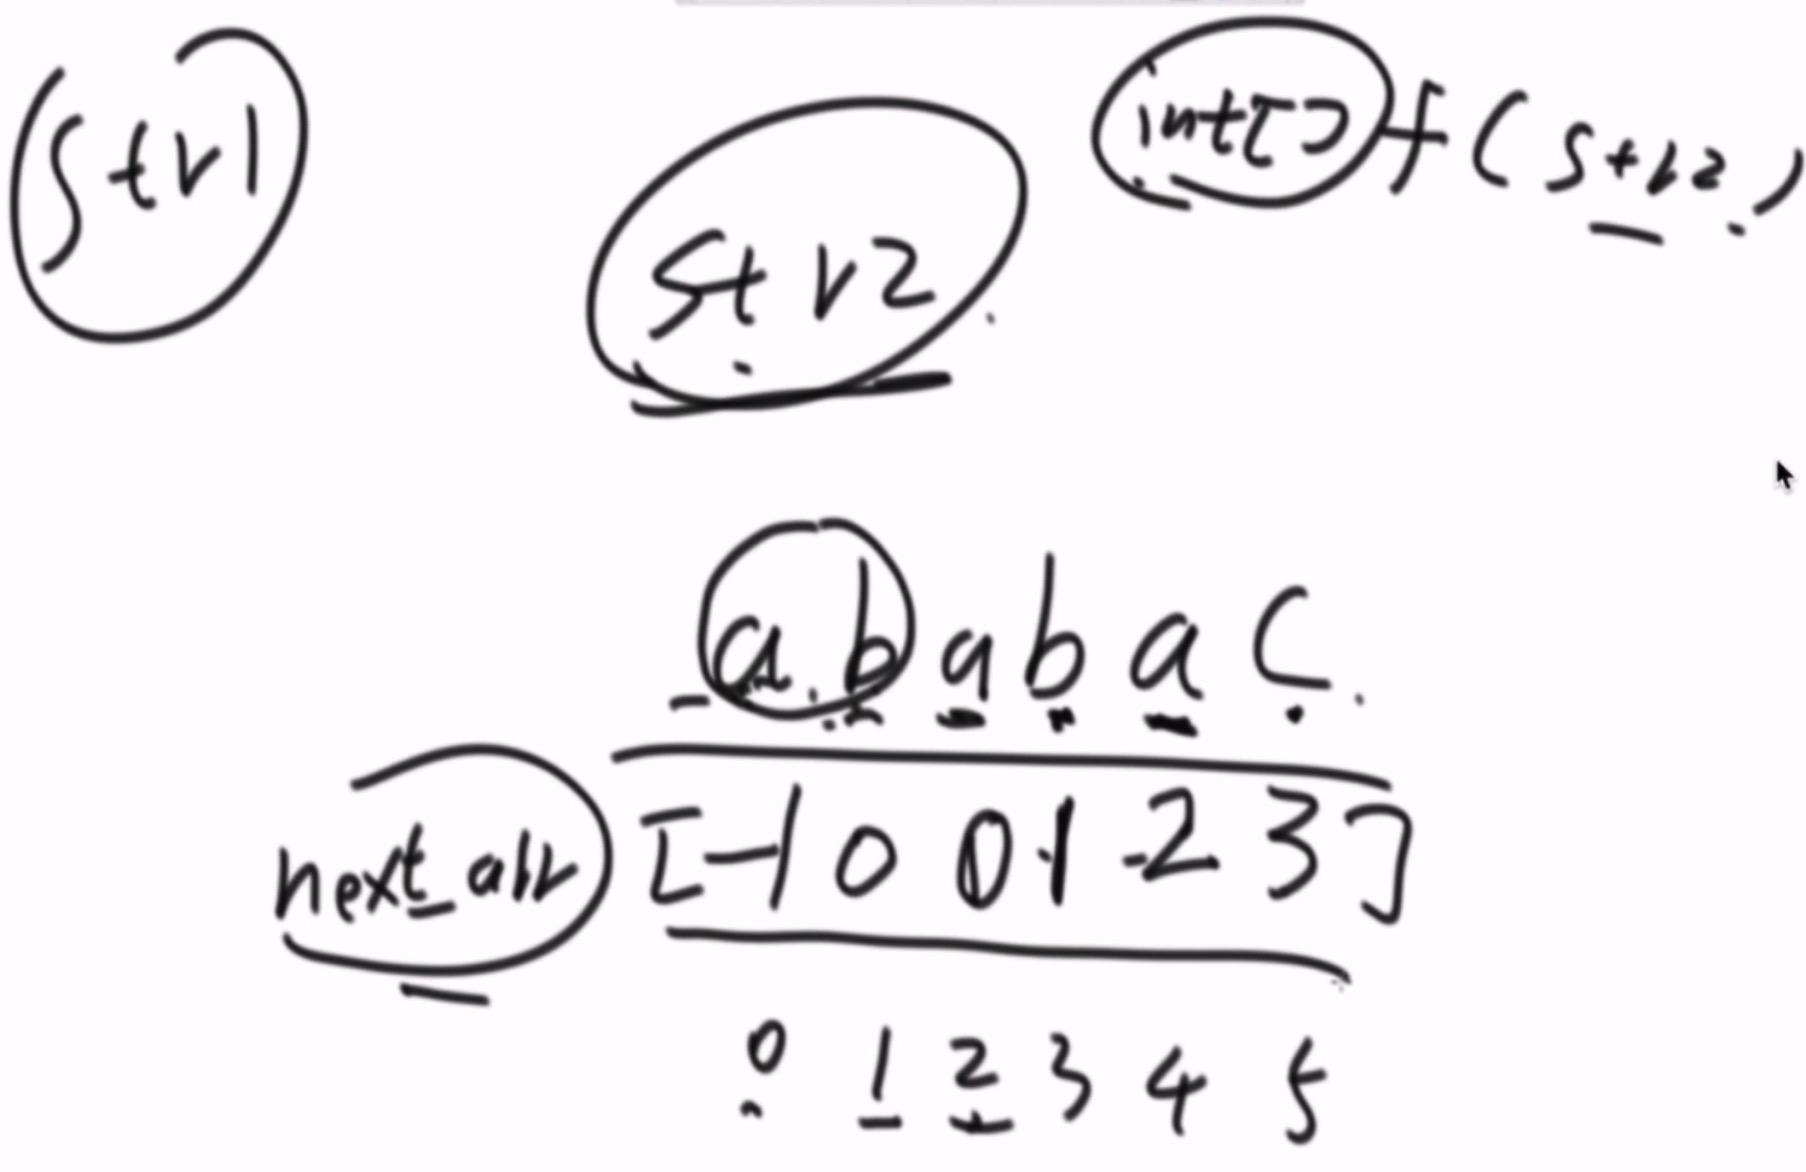 str1
int[] f(str2)
str2
a b a b a c
next_arr [-1 0 0 1 2 3]
0 1 2 3 4 5